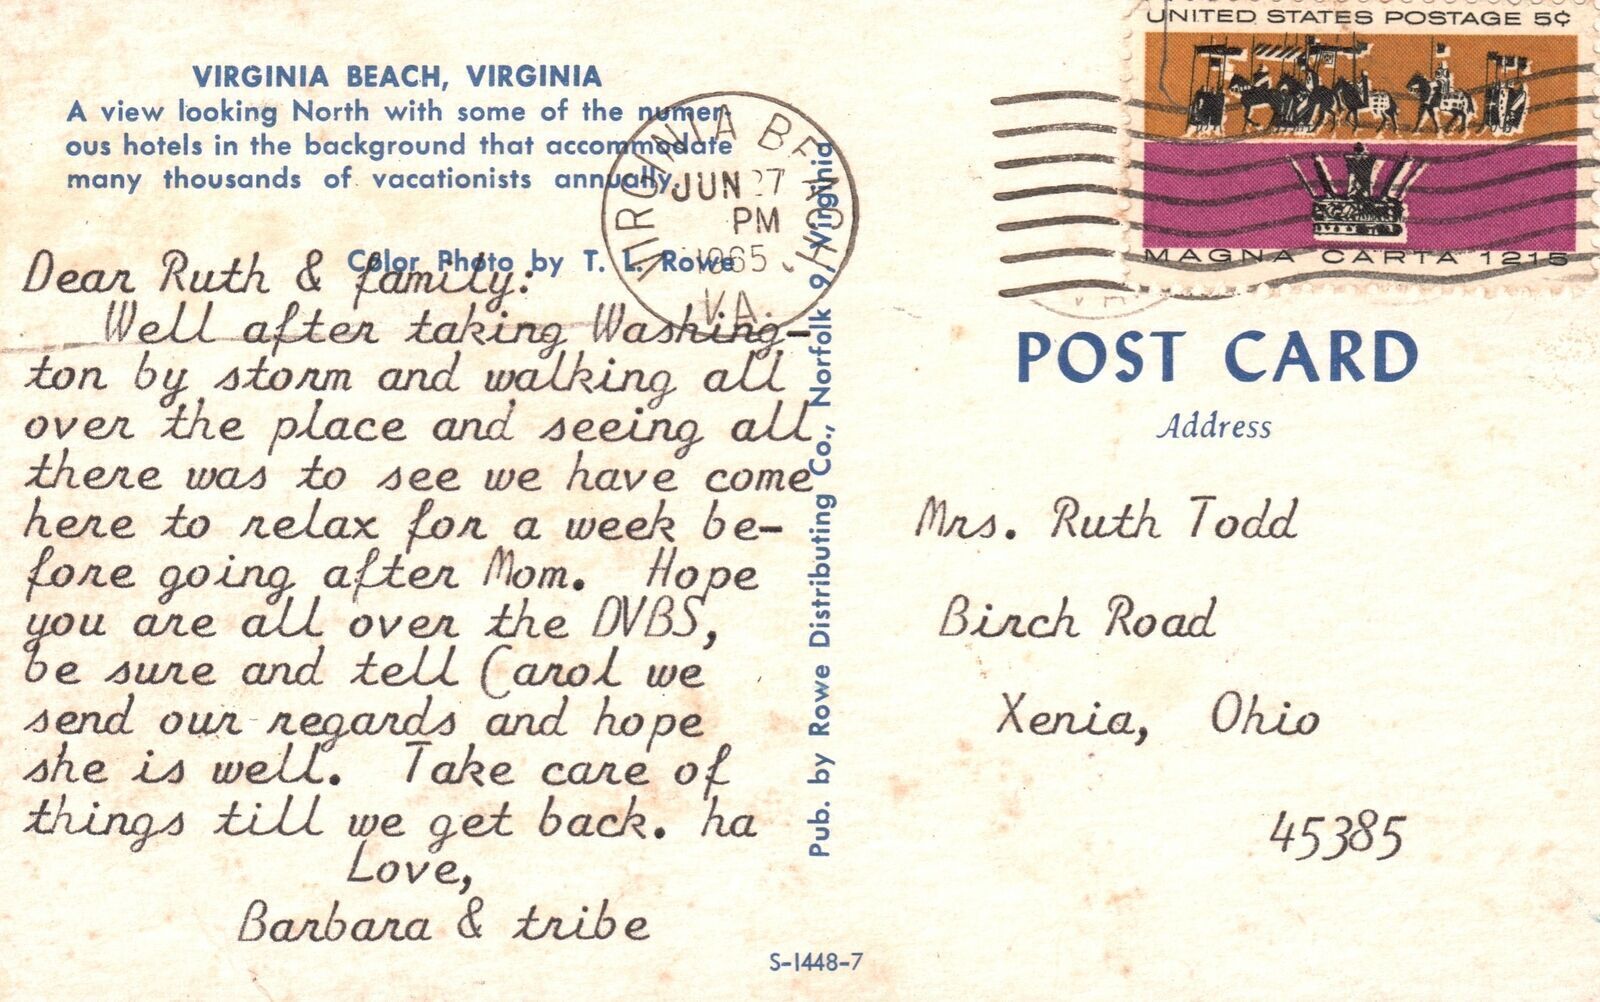 VIRGINIA BEACH, VIRGINIA
A view looking North with some of the numer-
ous hotels in the background that accommodate
many thousands of vacationists annually.
Color Photo by T. L. Rowe
VIRGINIA BEACH
JUN 27
PM
1965
VA.
Dear Ruth & family:
Well after taking Washing-
ton by storm and walking all
over the place and seeing all
there was to see we have come
here to relax for a week be-
fore going after Mom. Hope
you are all over the DVBS,
be sure and tell Carol we
send our regards and hope
she is well. Take care of
things till we get back. ha
Love,
Barbara & tribe
Pub. by Rowe Distributing Co., Norfolk 9, Virginia
S-1448-7
UNITED STATES POSTAGE 5¢
MAGNA CARTA 1215
VA.
POST CARD
Address
Mrs. Ruth Todd
Birch Road
Xenia, Ohio
45385